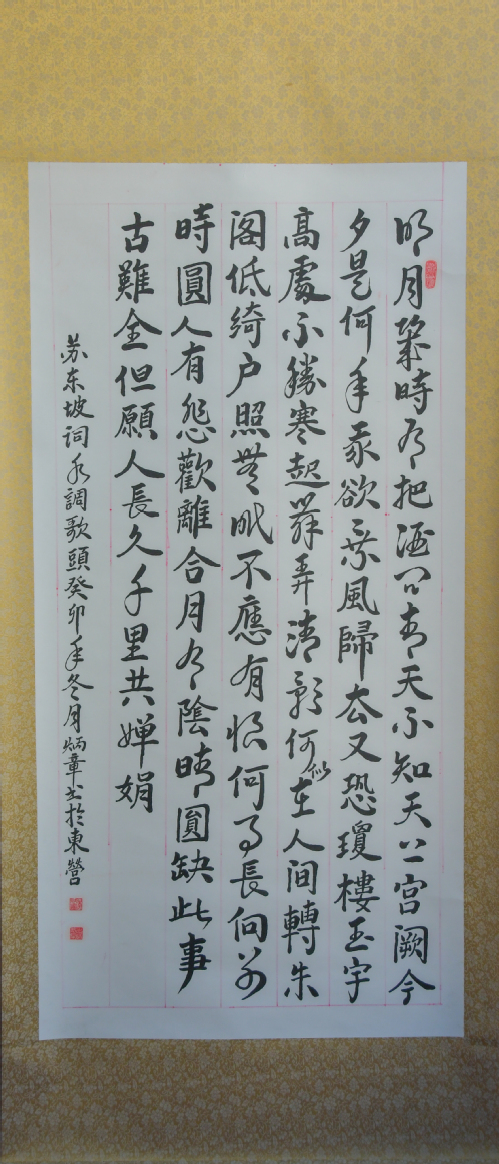 明月幾時有把酒问青天不知天上宫阙今
夕是何年我欲乘風歸去又恐瓊樓玉宇
高處不勝寒起舞弄清影何似在人间轉朱
阁低綺户照無眠不應有恨何事長向别
時圓人有悲歡離合月有陰晴圓缺此事
古難全但願人長久千里共婵娟
苏东坡词水調歌頭癸卯年冬月炳章书於東營